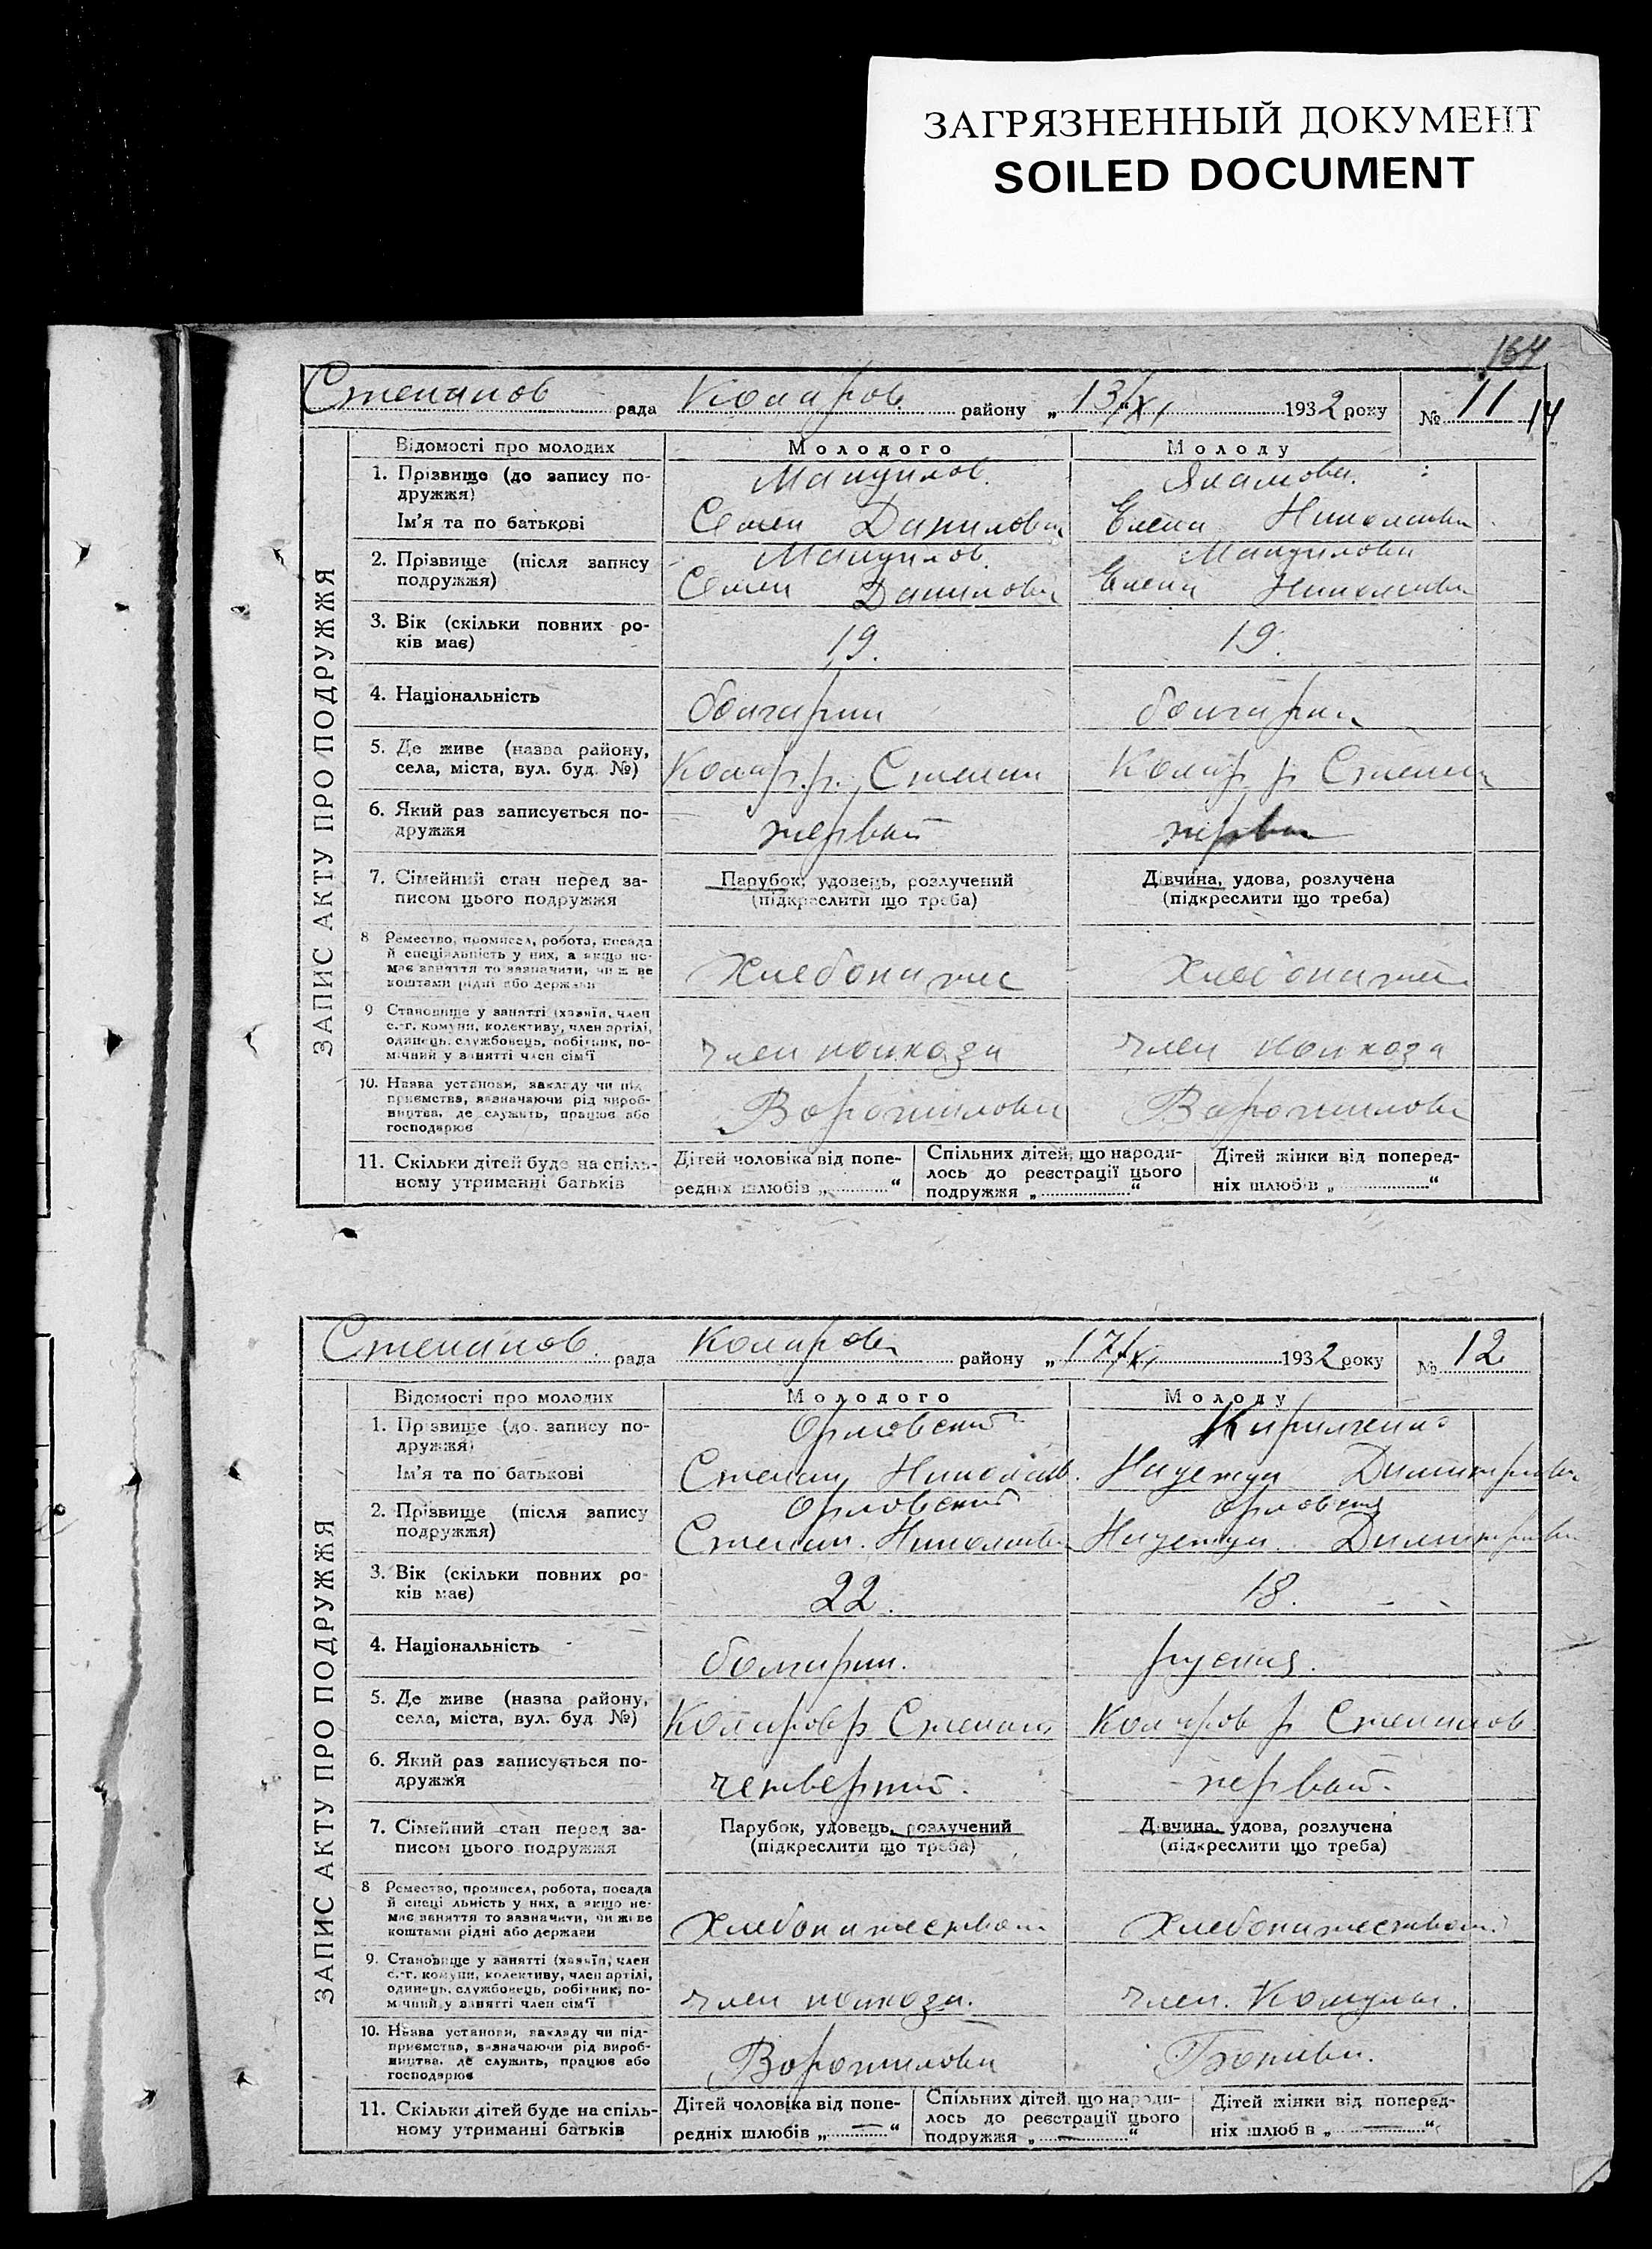 ЗАГРЯЗНЕННЫЙ ДОКУМЕНТ
SOILED DOCUMENT
164
Степанов рада Коларов району „13/XI 1932 року № 11
14
ЗАПИС АКТУ ПРО ПОДРУЖЖЯ
Відомості про молодих Молодого Молоду
1. Прізвище (до запису по-
дружжя)
Ім'я та по батькові Семен Данилович Елена Николаевна
2. Прізвище (після запису
подружжя) Семен Данилович Елена Николаевна
3. Вік (скільки повних ро-
ків має) 19. 19.
4. Національність болгарин болгарка
5. Де живе (назва району,
села, міста, вул. буд. №) Колар. р. Степан Колар р Степан
6. Який раз записується по-
дружжя первый первый
7. Сімейний стан перед за-
писом цього подружжя
Парубок, удовець, розлучений
(підкреслити що треба)
Дівчина, удова, розлучена
(підкреслити що треба)
8 Ремество, промисел, робота, посада
й спеціальність у них, а якщо не-
має заняття то зазначити, чи ж ве
коштами рідні або держави
Хлебопашес Хлебопашес
9 Становище у занятті (хазяїн, член
с.-г. комуни, колективу, член артілі,
одинець, службовець, робітник, по-
мічний у занятті член сім'ї
член колхоза член колхоза
10. Назва установи, закладу чи під-
приємства, зазначаючи рід вироб-
ництва, де служить, працює або
господарює
Ворошилова Ворошилова
11. Скільки дітей буде на спіль-
ному утриманні батьків
Дітей чоловіка від попе-
редніх шлюбів „ “
Спільних дітей, що народи-
лось до реєстрації цього
подружжя „ “
Дітей жінки від поперед-
ніх шлюбів „ “
Степанов рада Коларов району „17/XI 1932 року № 12
ЗАПИС АКТУ ПРО ПОДРУЖЖЯ
Відомості про молодих Молодого Молоду
1. Прізвище (до запису по-
дружжя) Орловский
Ім'я та по батькові Степан Николаев. Надежда Димитровна
2. Прізвище (після запису
подружжя) Орловский Орловская
Степан Николаевич Надежда Димитровна
3. Вік (скільки повних ро-
ків має) 22. 18.
4. Національність болгарин. руская.
5. Де живе (назва району,
села, міста, вул. буд. №) Коларов р Степан Коларов р Степанов
6. Який раз записується по-
дружжя четвертий. первый.
7. Сімейний стан перед за-
писом цього подружжя
Парубок, удовець, розлучений
(підкреслити що треба)
Дівчина, удова, розлучена
(підкреслити що треба)
8 Ремество, промисел, робота, посада
й спеціальність у них, а якщо не-
має заняття то зазначити, чи живе
коштами рідні або держави
Хлебопашеством Хлебопашеством
9. Становище у занятті (хазяїн, член
с.-г. комуни, колективу, член артілі,
одинець, службовець, робітник, по-
мічний у занятті член сім'ї
член колхоза. член. Комуны.
10. Назва установи, закладу чи під-
приємства, зазначаючи рід вироб-
ництва, де служить, працює або
господарює
Ворошилова Ботева.
11. Скільки дітей буде на спіль-
ному утриманні батьків
Дітей чоловіка від попе-
редніх шлюбів „ — “
Спільних дітей, що народи-
лось до реєстрації цього
подружжя „ — “
Дітей жінки від поперед-
ніх шлюбів „ — “